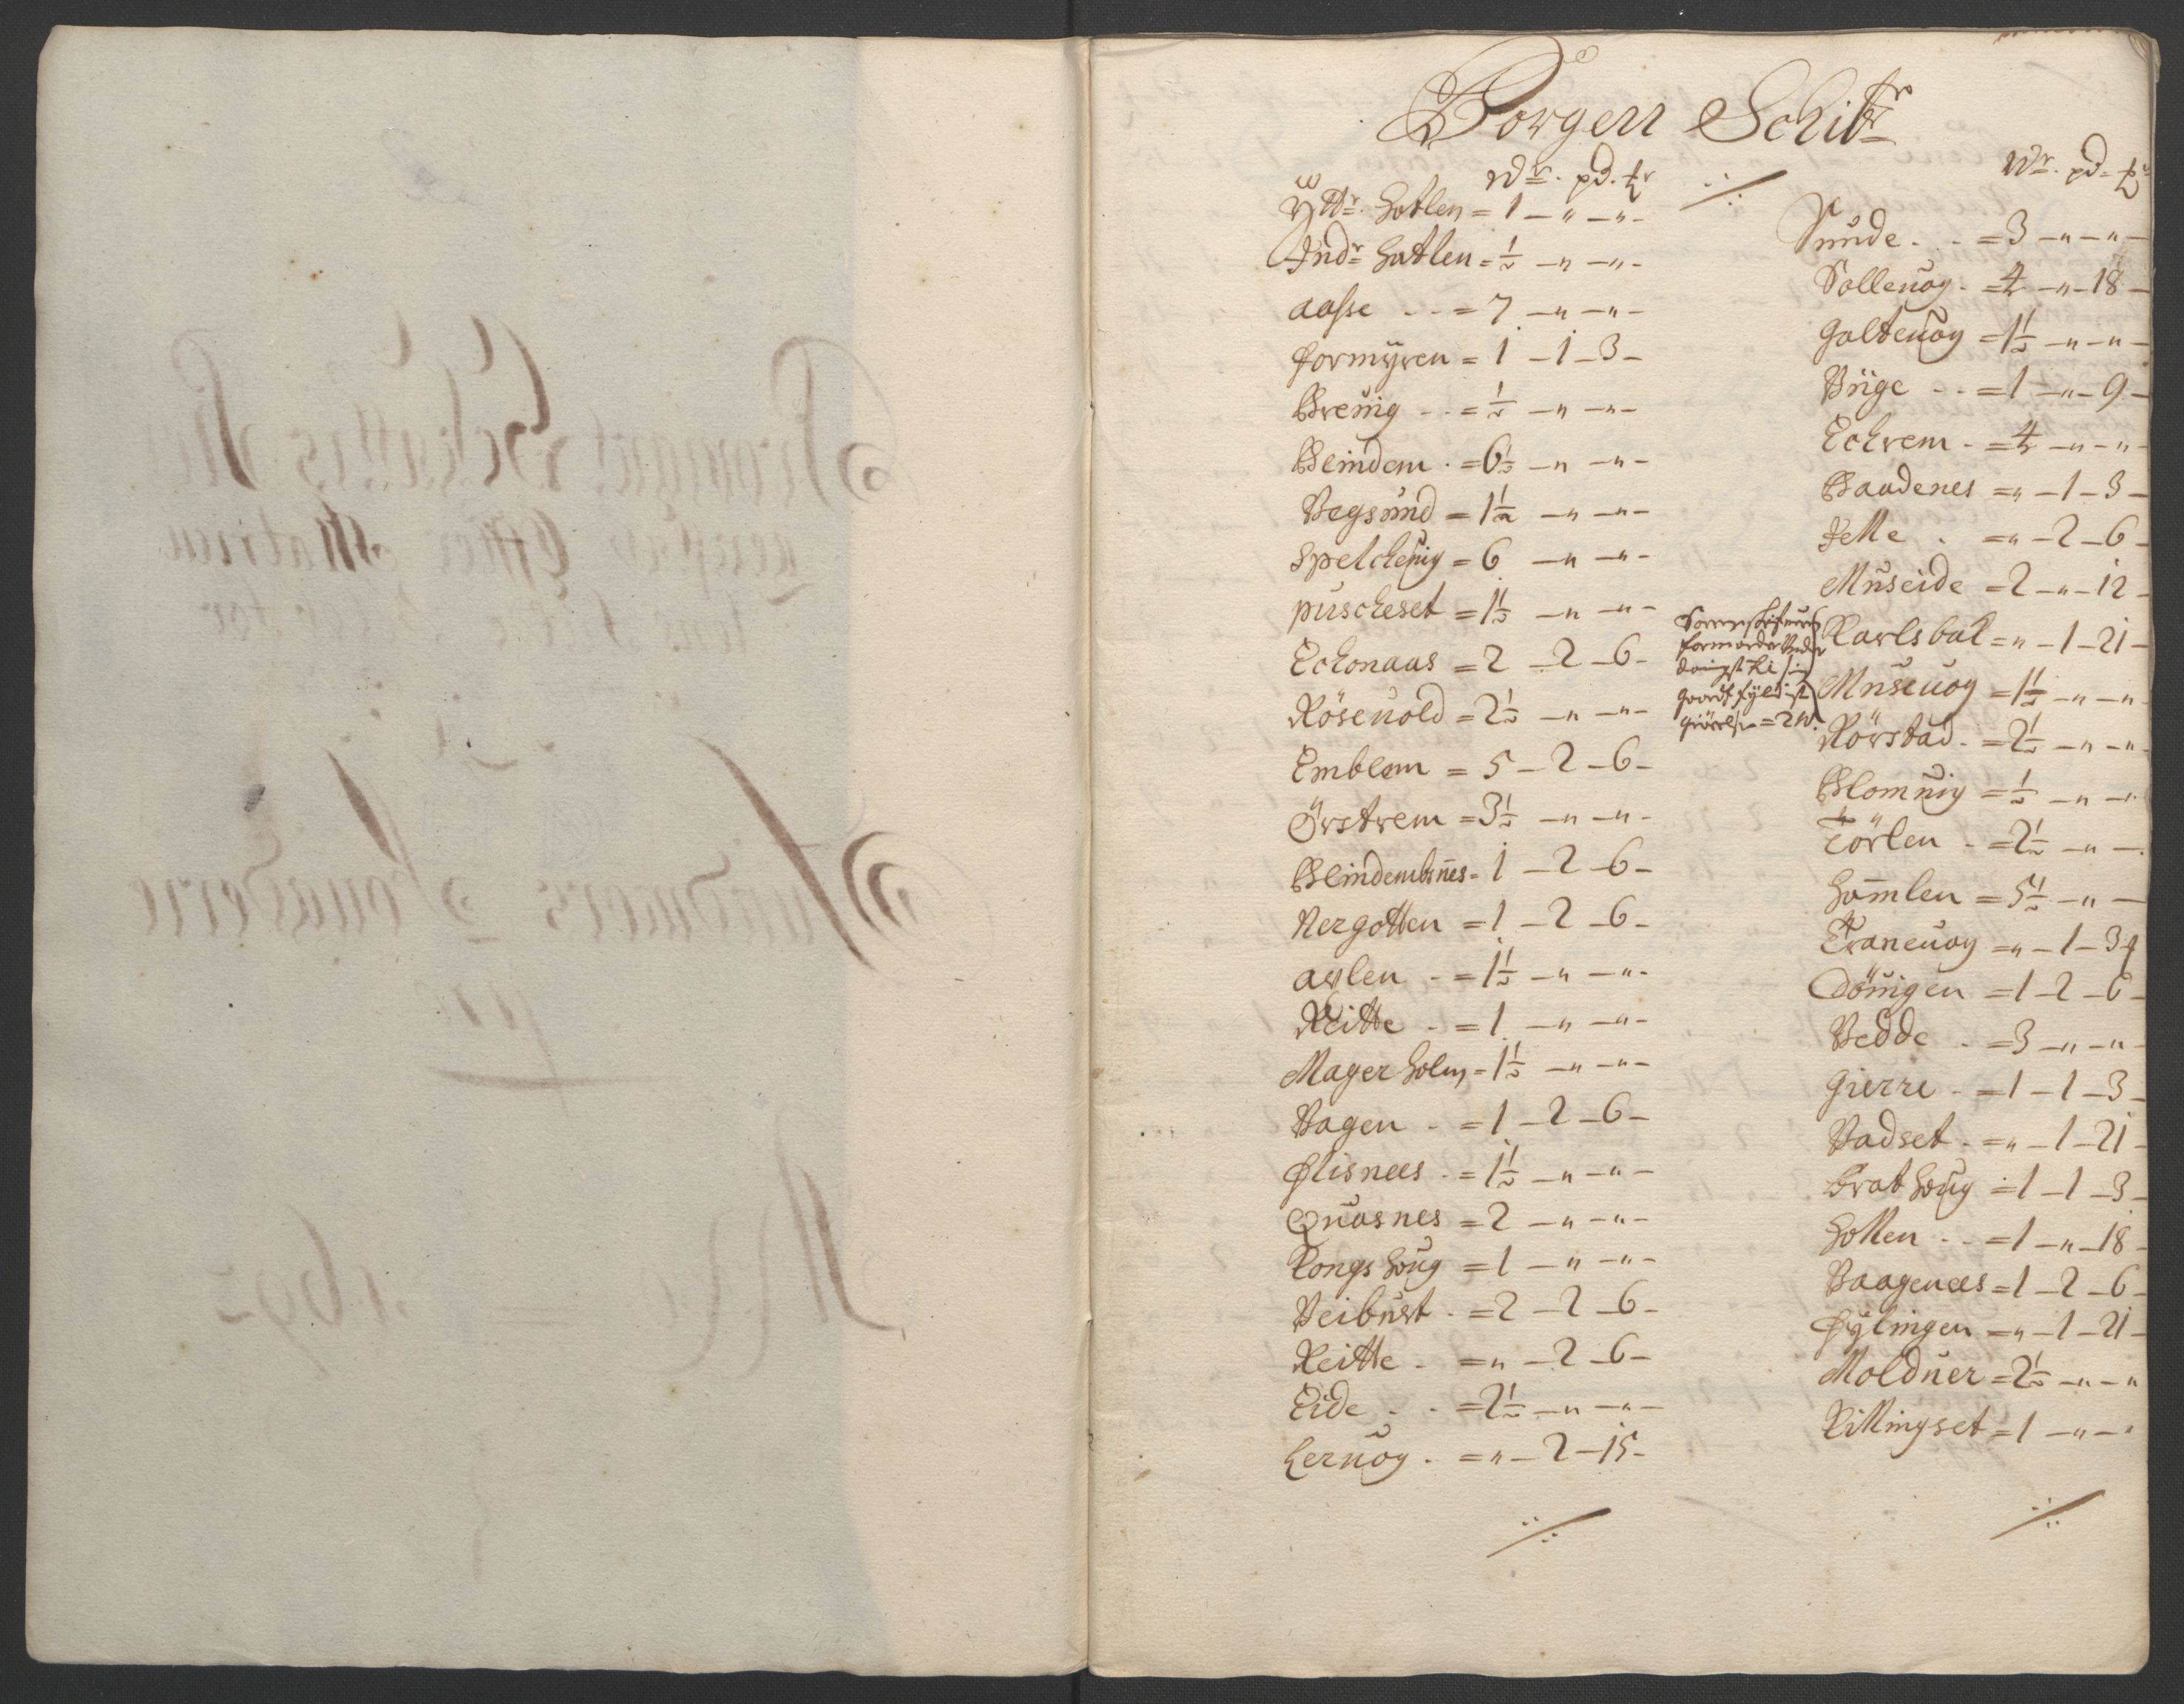 Borgen Schibr
Wr. pd. ℔r
Yttr. Hatlen = 1 – " – " –
Indr Hatlen = ½ – " – " –
Aasse . . = 7 – " – " –
Formÿren = 1 – 1 – 3 –
Breuig . . = ½ – " – " –
Blindem . = 6½ – " – " –
Vegsund = 1½ – " – " –
Spelcheuig = 6 – " – " –
Puscheset = 1½ – " – " –
Echonaas = 2 – 2 – 6 –
Röseuold = 2½ – " – " –
Emblem = 5 – 2 – 6 –
Örstrem = 3½ – " – " –
Blindembsnes = 1 – 2 – 6 –
Nergotten = 1 – 2 – 6 –
Aslen . = 1½ – " – " –
Reitte . = 1 – " – " –
Magerholm = 1½ – " – " –
Vagen . = 1 – 2 – 6 –
Flisnees . = 1½ – " – " –
Quasnes = 2 – " – " –
Kongshoug = 1 – " – " –
Veibust . = 2 – 2 – 6 –
Reitte . = " – 2 – 6 –
Eide . . = 2½ – " – " –
Leruog . = " – 2 – 15 –
Wr. pd. ℔r
Sunde . . = 3 – " – " –
Solleuog . = 4 – " – 18 –
Galteuog = 1½ – " – " –
Büge . . = 1 – " – 9 –
Echrem . = 4 – " – " –
Baadenes = " – 1 – 3 –
Felle . = " – 2 – 6 –
Museide = 2 – " – 12 –
Karlsbal = " – 1 – 21 –
Museuog = 1½ – " – "
Rörstad . = 2½ – " – " –
Blomuig = ½ – " –
Törlen . = 2½ – " –
Hamlen = 5½ – " –
Traneuog = " – 1 – 3
Döuigen = 1 – 2 – 6 –
Vedde . = 3 – " – " –
Gierre . = 1 – 1 – 3 –
Vadset . = " – 1 – 21 –
Brathoug = 1 – 1 – 3 –
Hollen . . = 1 – " – 18 –
Vaagenees = 1 – 2 – 6 –
Fÿlingen = " – 1 – 21 –
Molduer = 2½ – " – "
Killingset = 1 – " – "